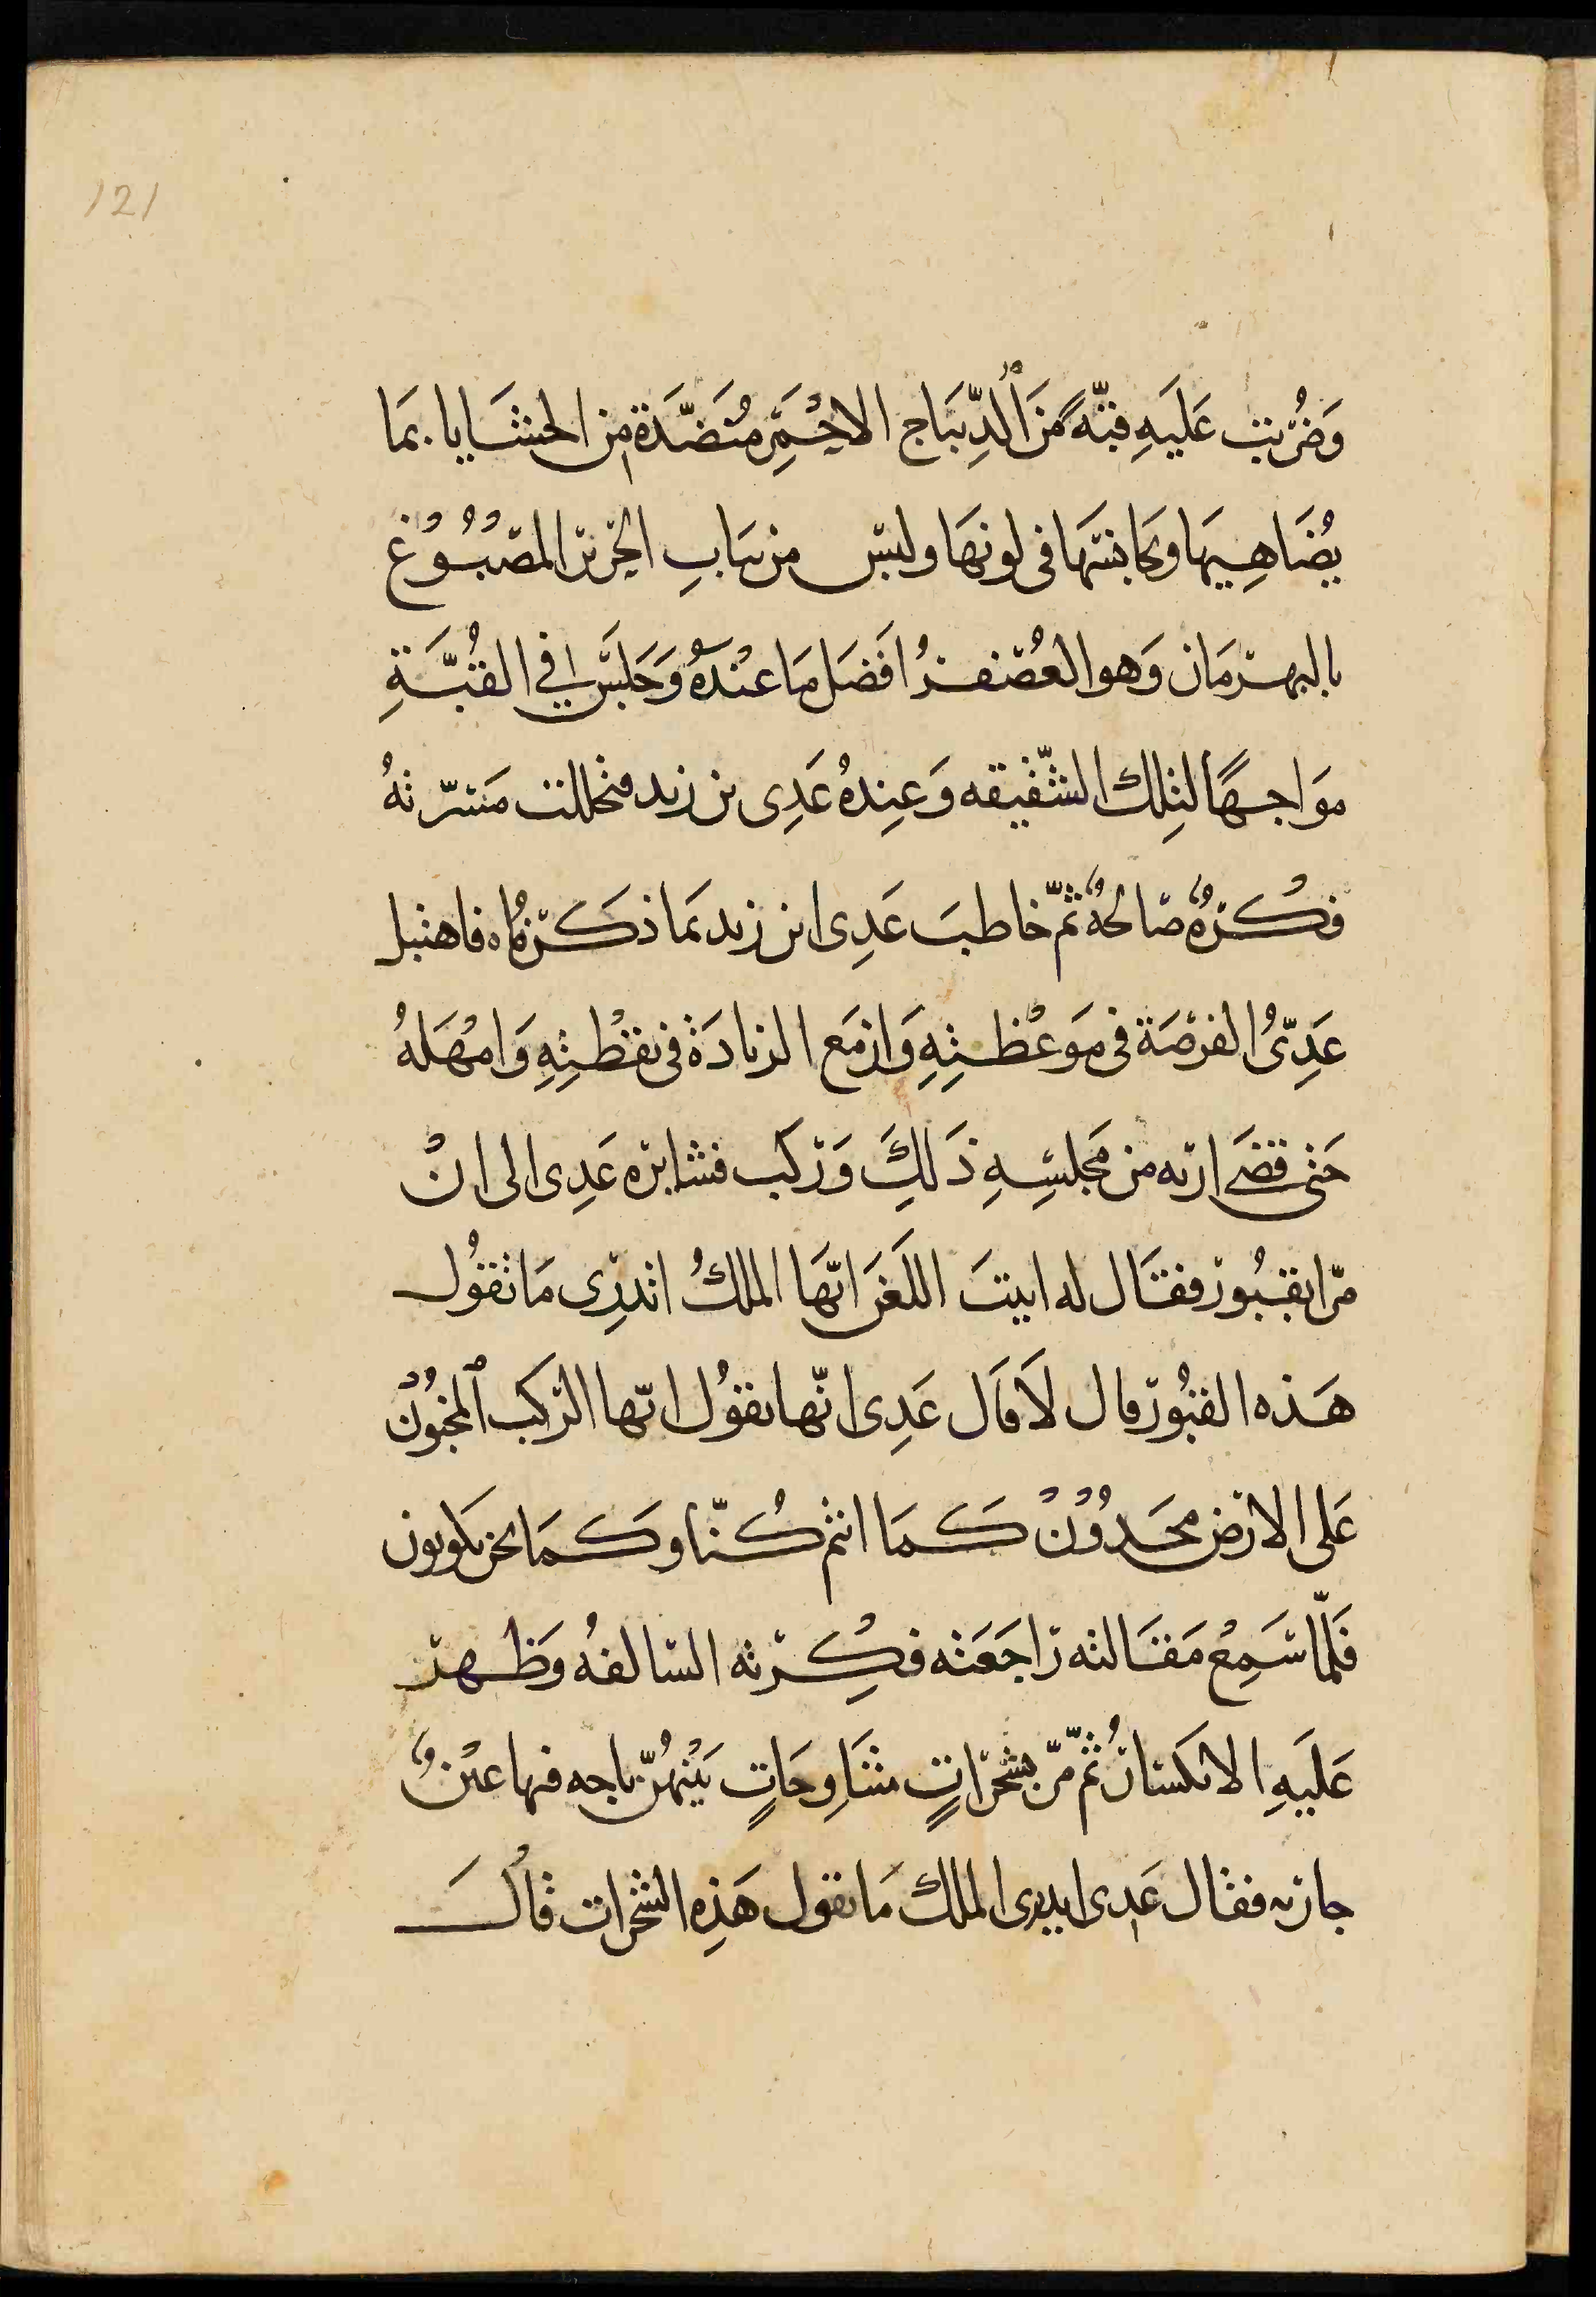 121
وَضُرِبت عَلَيهِ قبّةً مِنَ الدِّيبَاج الاحْمَرِ مُنَضَّدَة من الحشَايا بمَا
يُضَاهِيهَا ويجانسَها في لونهَا ولبس من ثيابِ الحرير المصْبُوْغ
بالبهرمَان وَهو العُصْفُرُ افضَل مَا عنْدَهُ وَجَلسَ في القُبَّةِ
موَاجهًا لتِلك الشّقيقه وَعِندهُ عَدِى بن زيد فتخللت مَسَرّتهُ
فكْرةٌ صَالحةٌ ثمّ خاطبَ عَدِى ابن زيد بمَا ذكَرْناه فاهتبل
عَدِّىُ الفرْصَة في مَوعْظتِهِ وَازمَع الزيادَة في يقظْتِهِ وَامْهَلهُ
حَتى قضَى اربه من مجَلسِهِ ذَلكَِ وَرَكب فسَايره عَدِى الى انْ
مرّا بقبُور فقَال له ابيتَ اللَعْنَ ايّهَا الملكُ اتدرِى مَا تقُول
هَذه القبُور قال لَا قَال عَدِى انّها تقوُل ايّها الرَكب المخبُّوْن
عَلى الارَض مجَدوُّنْ كَمَا انتم كُنّا وكَمَا نحن تكونون
فَلمّا سَمِعْ مَقَالته رَاجَعَته فكِْرته السَالفُه وَظهر
عَلَيهِ الانكسَارُ ثمّ مرّ بشجَرَاتٍ متنَاوِحَاتٍ بَيْنهُنّ ناجه فيها عيْنٌ
جاريه فقال عَدِى ايدرى الملك مَا تقول هَذِه الشجَرات قالَ